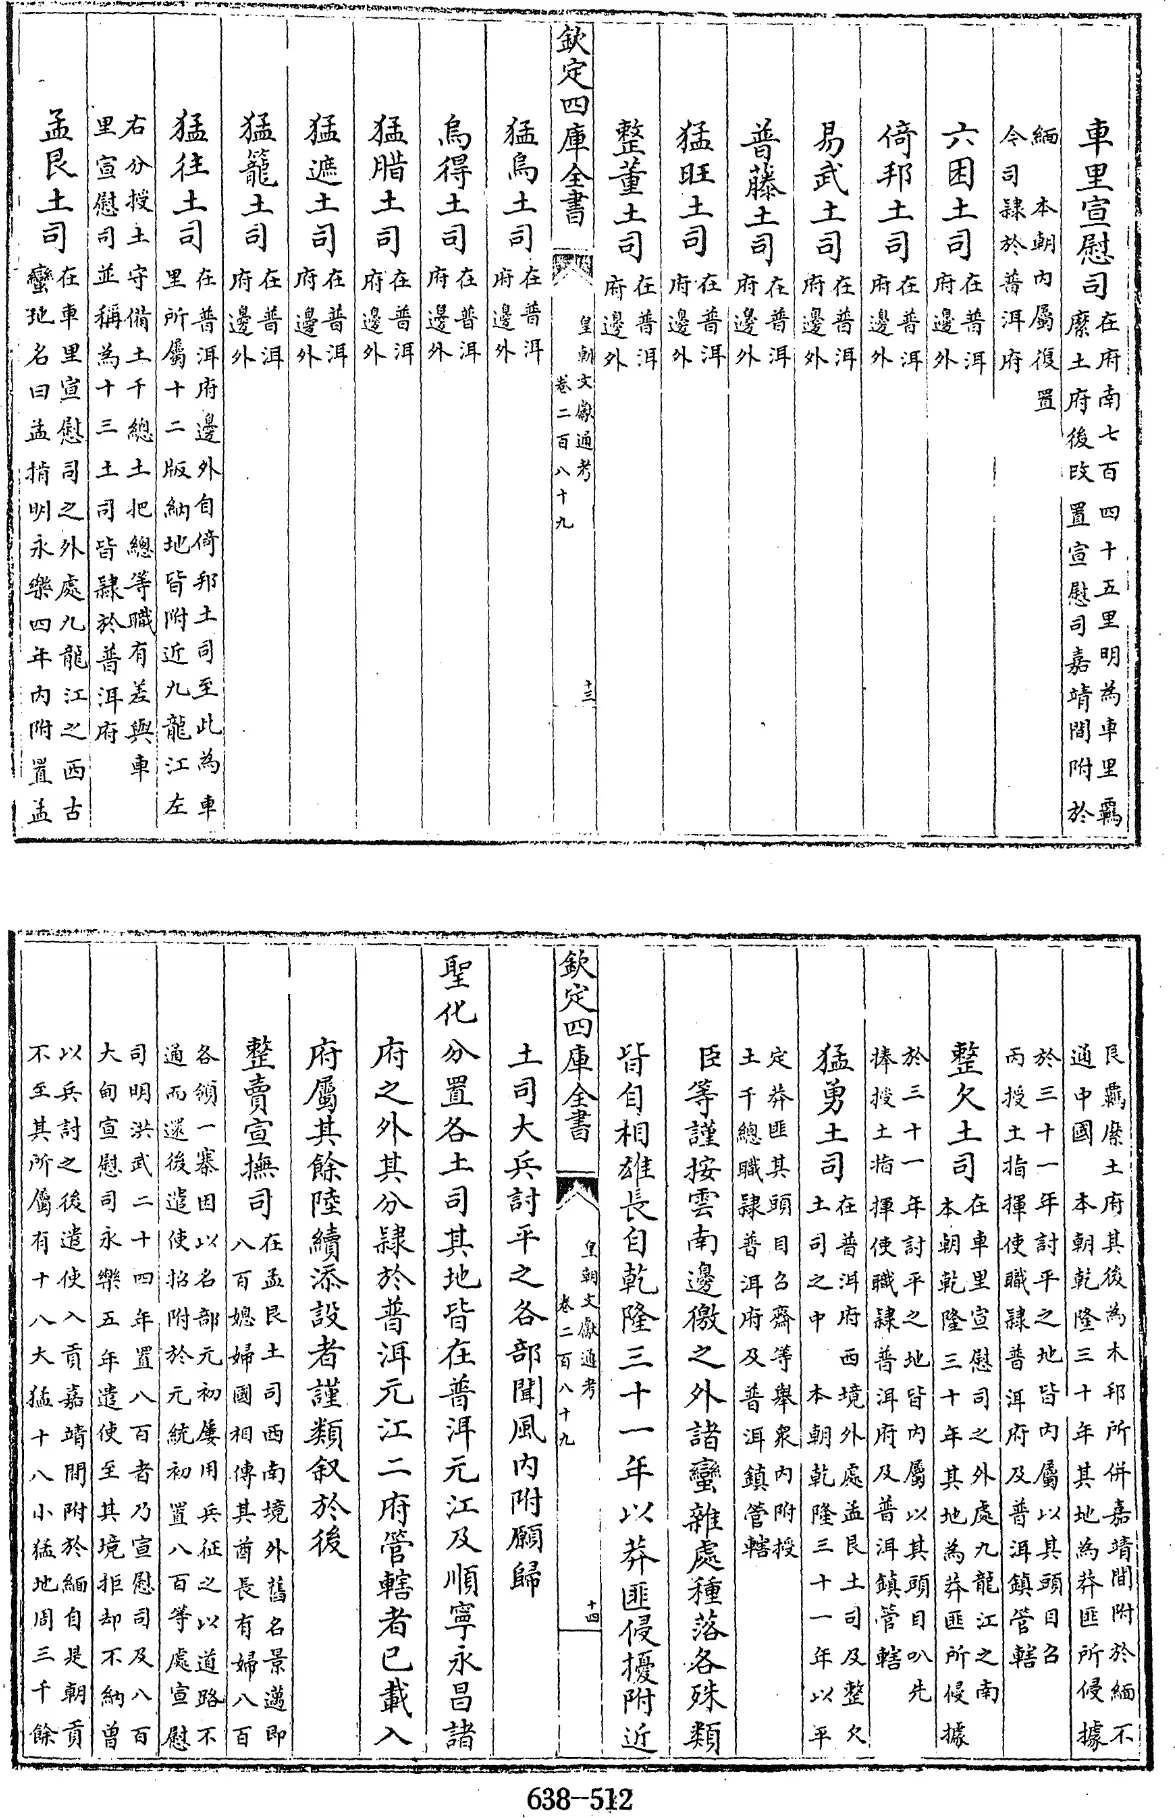 車里宣慰司在府南七百四十五里明為車里羈
縻土府後改置宣慰司嘉靖間附於
緬　本朝內屬復置
今司隸於普洱府
六困土司在普洱
府邊外
倚邦土司在普洱
府邊外
易武土司在普洱
府邊外
普藤土司在普洱
府邊外
猛旺土司在普洱
府邊外
整董土司在普洱
府邊外
欽定四庫全書
皇朝文獻通考
卷二百八十九
十三
猛烏土司在普洱
府邊外
烏得土司在普洱
府邊外
猛腊土司在普洱
府邊外
猛遮土司在普洱
府邊外
猛籠土司在普洱
府邊外
猛往土司在普洱府邊外自倚邦土司至此為車
里所屬十二版納地皆附近九龍江左
右分授土守備土千總土把總等職有差與車
里宣慰司並稱為十三土司皆隸於普洱府
孟艮土司在車里宣慰司之外處九龍江之西古
蠻地名曰孟揹明永樂四年內附置孟
艮羈縻土府其後為木邦所併嘉靖間附於緬不
通中國　本朝乾隆三十年其地為莽匪所侵據
於三十一年討平之地皆內屬以其頭目召
丙授土指揮使職隸普洱府及普洱鎮管轄
整欠土司在車里宣慰司之外處九龍江之南
本朝乾隆三十年其地為莽匪所侵據
於三十一年討平之地皆內屬以其頭目叭先
捧授土指揮使職隸普洱府及普洱鎮管轄
猛勇土司在普洱府西境外處孟艮土司及整欠
土司之中　本朝乾隆三十一年以平
定莽匪其頭目召齋等舉衆內附授
土千總職隸普洱府及普洱鎮管轄
臣等謹按雲南邊徼之外諸蠻雜處種落各殊類
皆自相雄長自乾隆三十一年以莽匪侵擾附近
欽定四庫全書
皇朝文獻通考
卷二百八十九
十四
土司大兵討平之各部聞風內附願歸
聖化分置各土司其地皆在普洱元江及順寧永昌諸
府之外其分隸於普洱元江二府管轄者已載入
府屬其餘陸續添設者謹類叙於後
整賣宣撫司在孟艮土司西南境外舊名景邁即
八百媳婦國相傳其酋長有婦八百
各領一寨因以名部元初屢用兵征之以道路不
通而還後遣使招附於元統初置八百等處宣慰
司明洪武二十四年置八百者乃宣慰司及八百
大甸宣慰司永樂五年遣使至其境拒却不納曾
以兵討之後遣使入貢嘉靖間附於緬自是朝貢
不至其所屬有十八大猛十八小猛地周三千餘
638-512